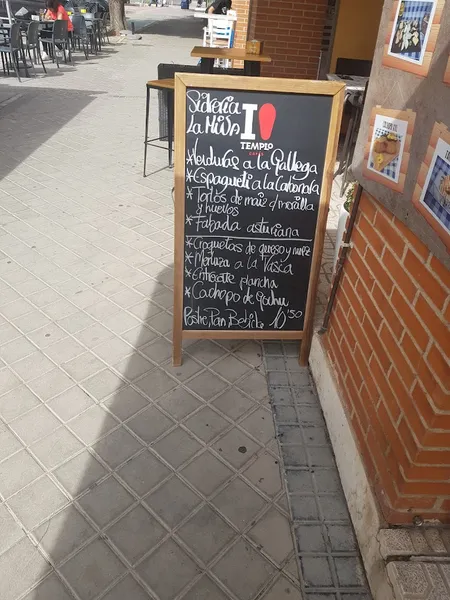 Sidrería
La Mina
I
TEMPLO
*Verduras a la Gallega
*Espagueti a la Carbonara
*Tortos de maiz c/morcilla
y huevos
*Fabada asturiana
*Croquetas de queso y nuez
*Merluza a la Vasca
*Entrecotte plancha
*Cachopo de Cochu
Postre, Pan, Bebid. 10'50